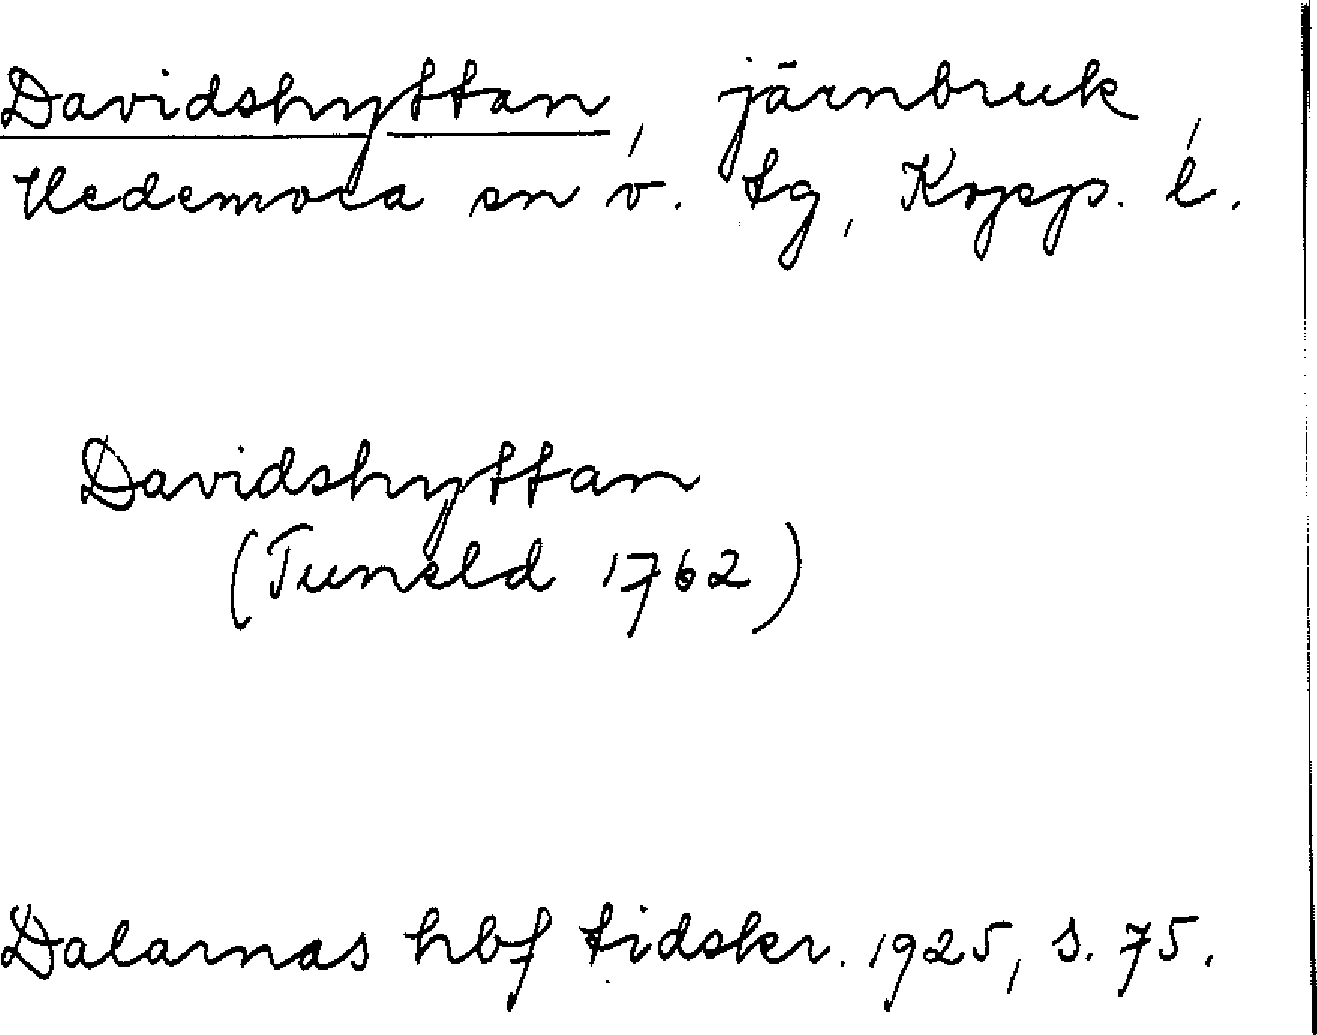 Davidshyttan, järnbruk,
Hedemora sn o. tg, Kopp. l.
Davidshyttan
(Tuneld 1762)
Dalarnas hbf tidskr. 1925, s. 75.